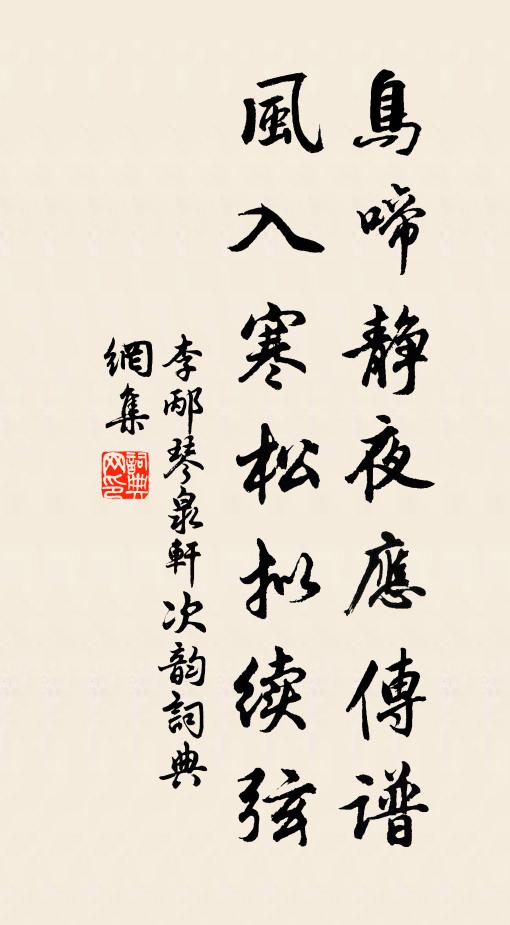 鳥啼静夜應傳譜
風入寒松拟续弦
李邴琴泉軒次韵詞典
網集
詞典网印